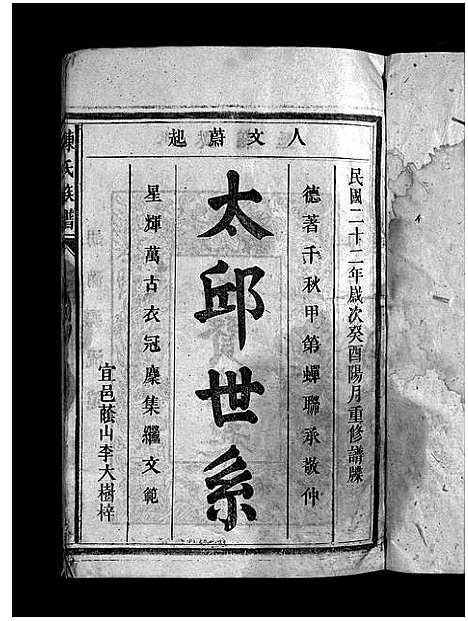 人文蔚起
民國二十二年歲次癸酉陽月重修譜牒
德著千秋甲第蟬聯承敬仲
太邱世系
星輝萬古衣冠麇集繼文範
宜邑蔭山李大樹梓
陳氏族譜